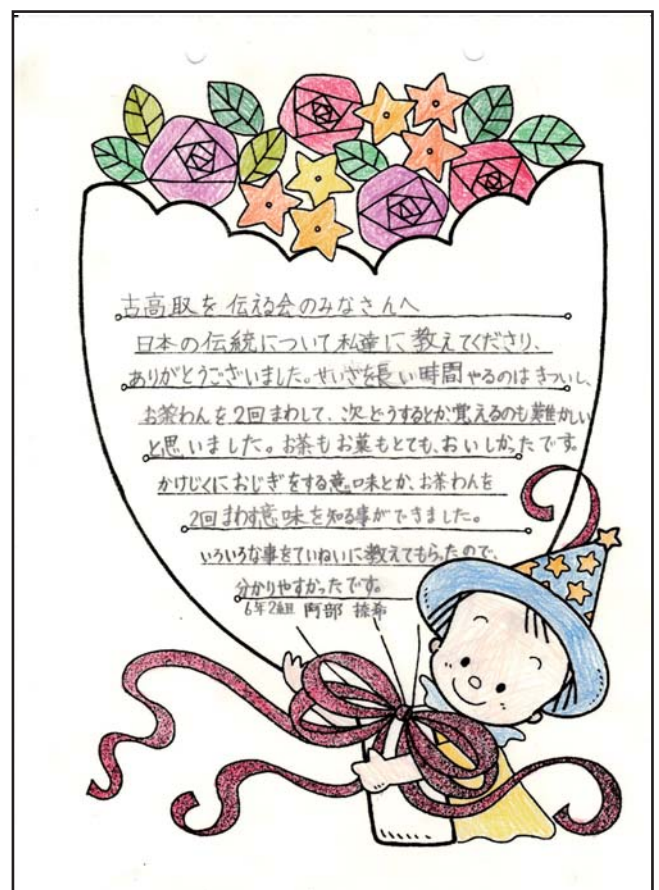 古高取を伝える会のみなさんへ
日本の伝統について私達に教えてくださり、
ありがとうございました。せいざを長い時間やるのはきついし、
お茶わんを2回まわして、次どうするとか、覚えるのも難かしい
と思いました。お茶もお菓もとても、おいしかったです。
かけじくにおじぎをする意味とか、お茶わんを
2回まわす意味を知る事ができました。
いろいろな事をていねいに教えてもらったので、
分かりやすかったです。
6年2組 阿部